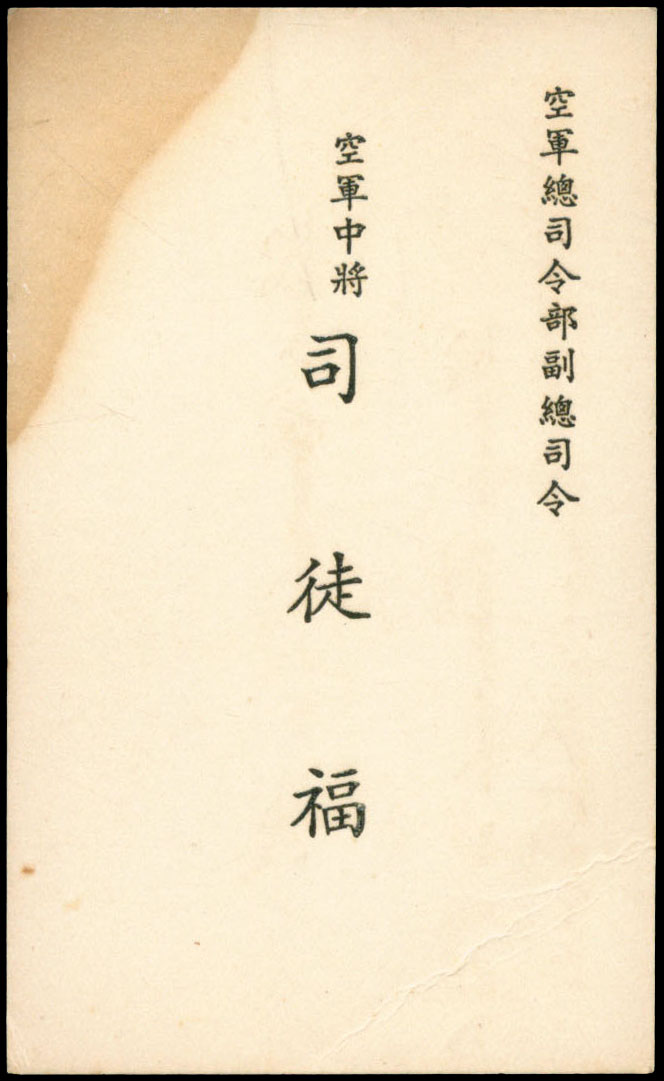 空軍總司令部副總司令
空軍中將
司徒福